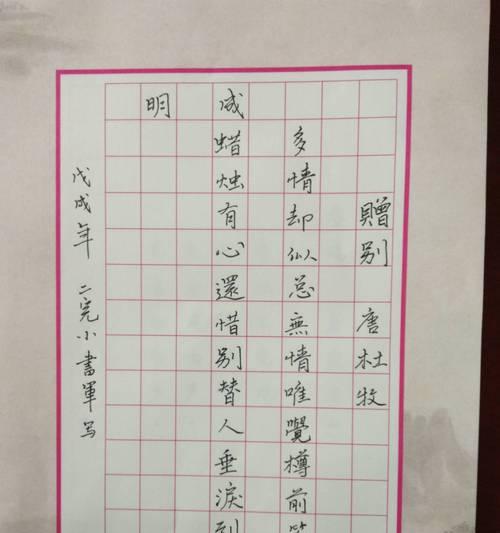 贈别 唐 杜牧
多情却似总無情唯覺樽前笑
成蜡烛有心還惜别替人垂淚到
明
戊戌年 二完小書軍写